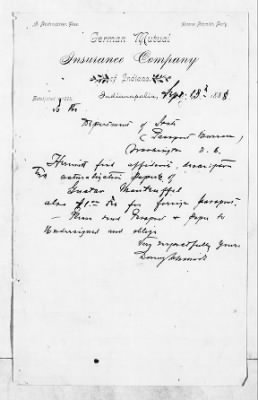 German Mutual
Insurance Company
of Indiana.
Indianapolis, Sept. 13th 1888
To the
Department of State
(Passport Bureau)
Washington D. C.
Herewith find affidavit, description
naturalization papers of
Gustav Manteuffel
also $1.00 fee for foreign Passport
— Please send Passport & papers to
Undersigned and oblige
Very respectfully Yours